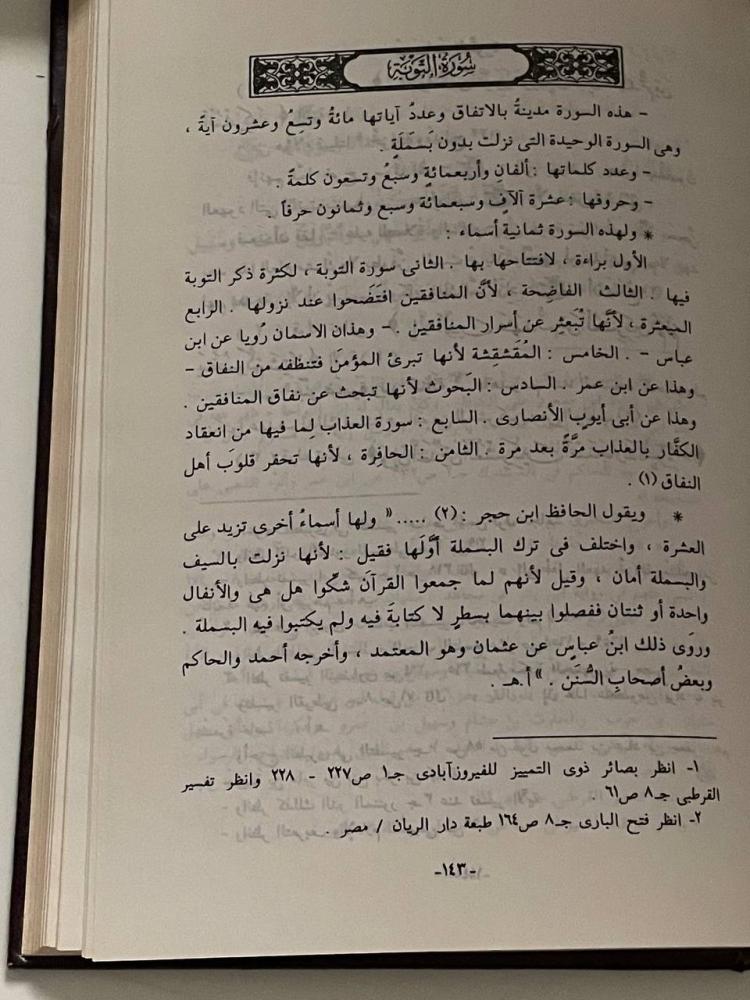 سورة التوبة
- هذه السورة مدينةُ بالاتفاق وعددُ آياتها مائةُ وتسِعُ وعشرون آيةً ،
وهى السورة الوحيدة التى نزلت بدون بَسمَلَةٍ .
- وعدد كلماتها : ألفانِ وأربعمائةٍ وسبعُ وتسعون كلمةً .
- وحروفها : عشرة آلآفٍ وسبعمائة وسبع وثمانون حرفاً .
* ولهذه السورة ثمانية أسماء :
الأول براءة ، لافتتاحها بها . الثانى سورة التوبة ، لكثرة ذكر التوبة
فيها . الثالث الفاضِحة ، لأنَّ المنافقين افتَضَحوا عند نزولها . الرابع
المبعثرة ، لأنَّها تُبَعثِر عن أسرار المنافقين . - وهذان الاسمان رُويا عن ابن
عباس - . الخامس : المُقَشقِشة لأنها تبرئ المؤمنَ فتنظفه من النفاق -
وهذا عن ابن عمر . السادس : البَحوث لأنها تبحث عن نفاق المنافقين .
وهذا عن أبى أيوبٍ الأنصارى . السابع : سورة العذاب لِما فيها من انعقاد
الكفَّار بالعذاب مرَّةً بعد مرة . الثامن : الحافِرة ، لأنها تحفر قلوبَ أهل
النفاق (١) .
* ويقول الحافظ ابن حجر : (٢) ..... « ولها أسماءُ أخرى تزيد على
العشرة ، واختلف فى ترك البسملة أوَّلَها فقيل : لأنها نزلت بالسيف
والبسملة أمان ، وقيل لأنهم لما جمعوا القرآنَ شكّوا هل هى والأنفال
واحدة أو ثنتان ففصلوا بينهما بسطرٍ لا كتابةَ فيه ولم يكتبوا فيه البسملة .
وروَى ذلك ابنُ عباسٍ عن عثمان وهو المعتمد ، وأخرجه أحمد والحاكم
وبعضُ أصحابِ السُّنَن . » أ.هـ .
١- انظر بصائر ذوى التمييز للفيروزآبادى جـ١ ص٢٢٧ - ٢٢٨ وانظر تفسير
القرطبي جـ٨ ص٦١ .
٢- انظر فتح البارى جـ٨ ص١٦٤ طبعة دار الريان / مصر .
-١٤٣-